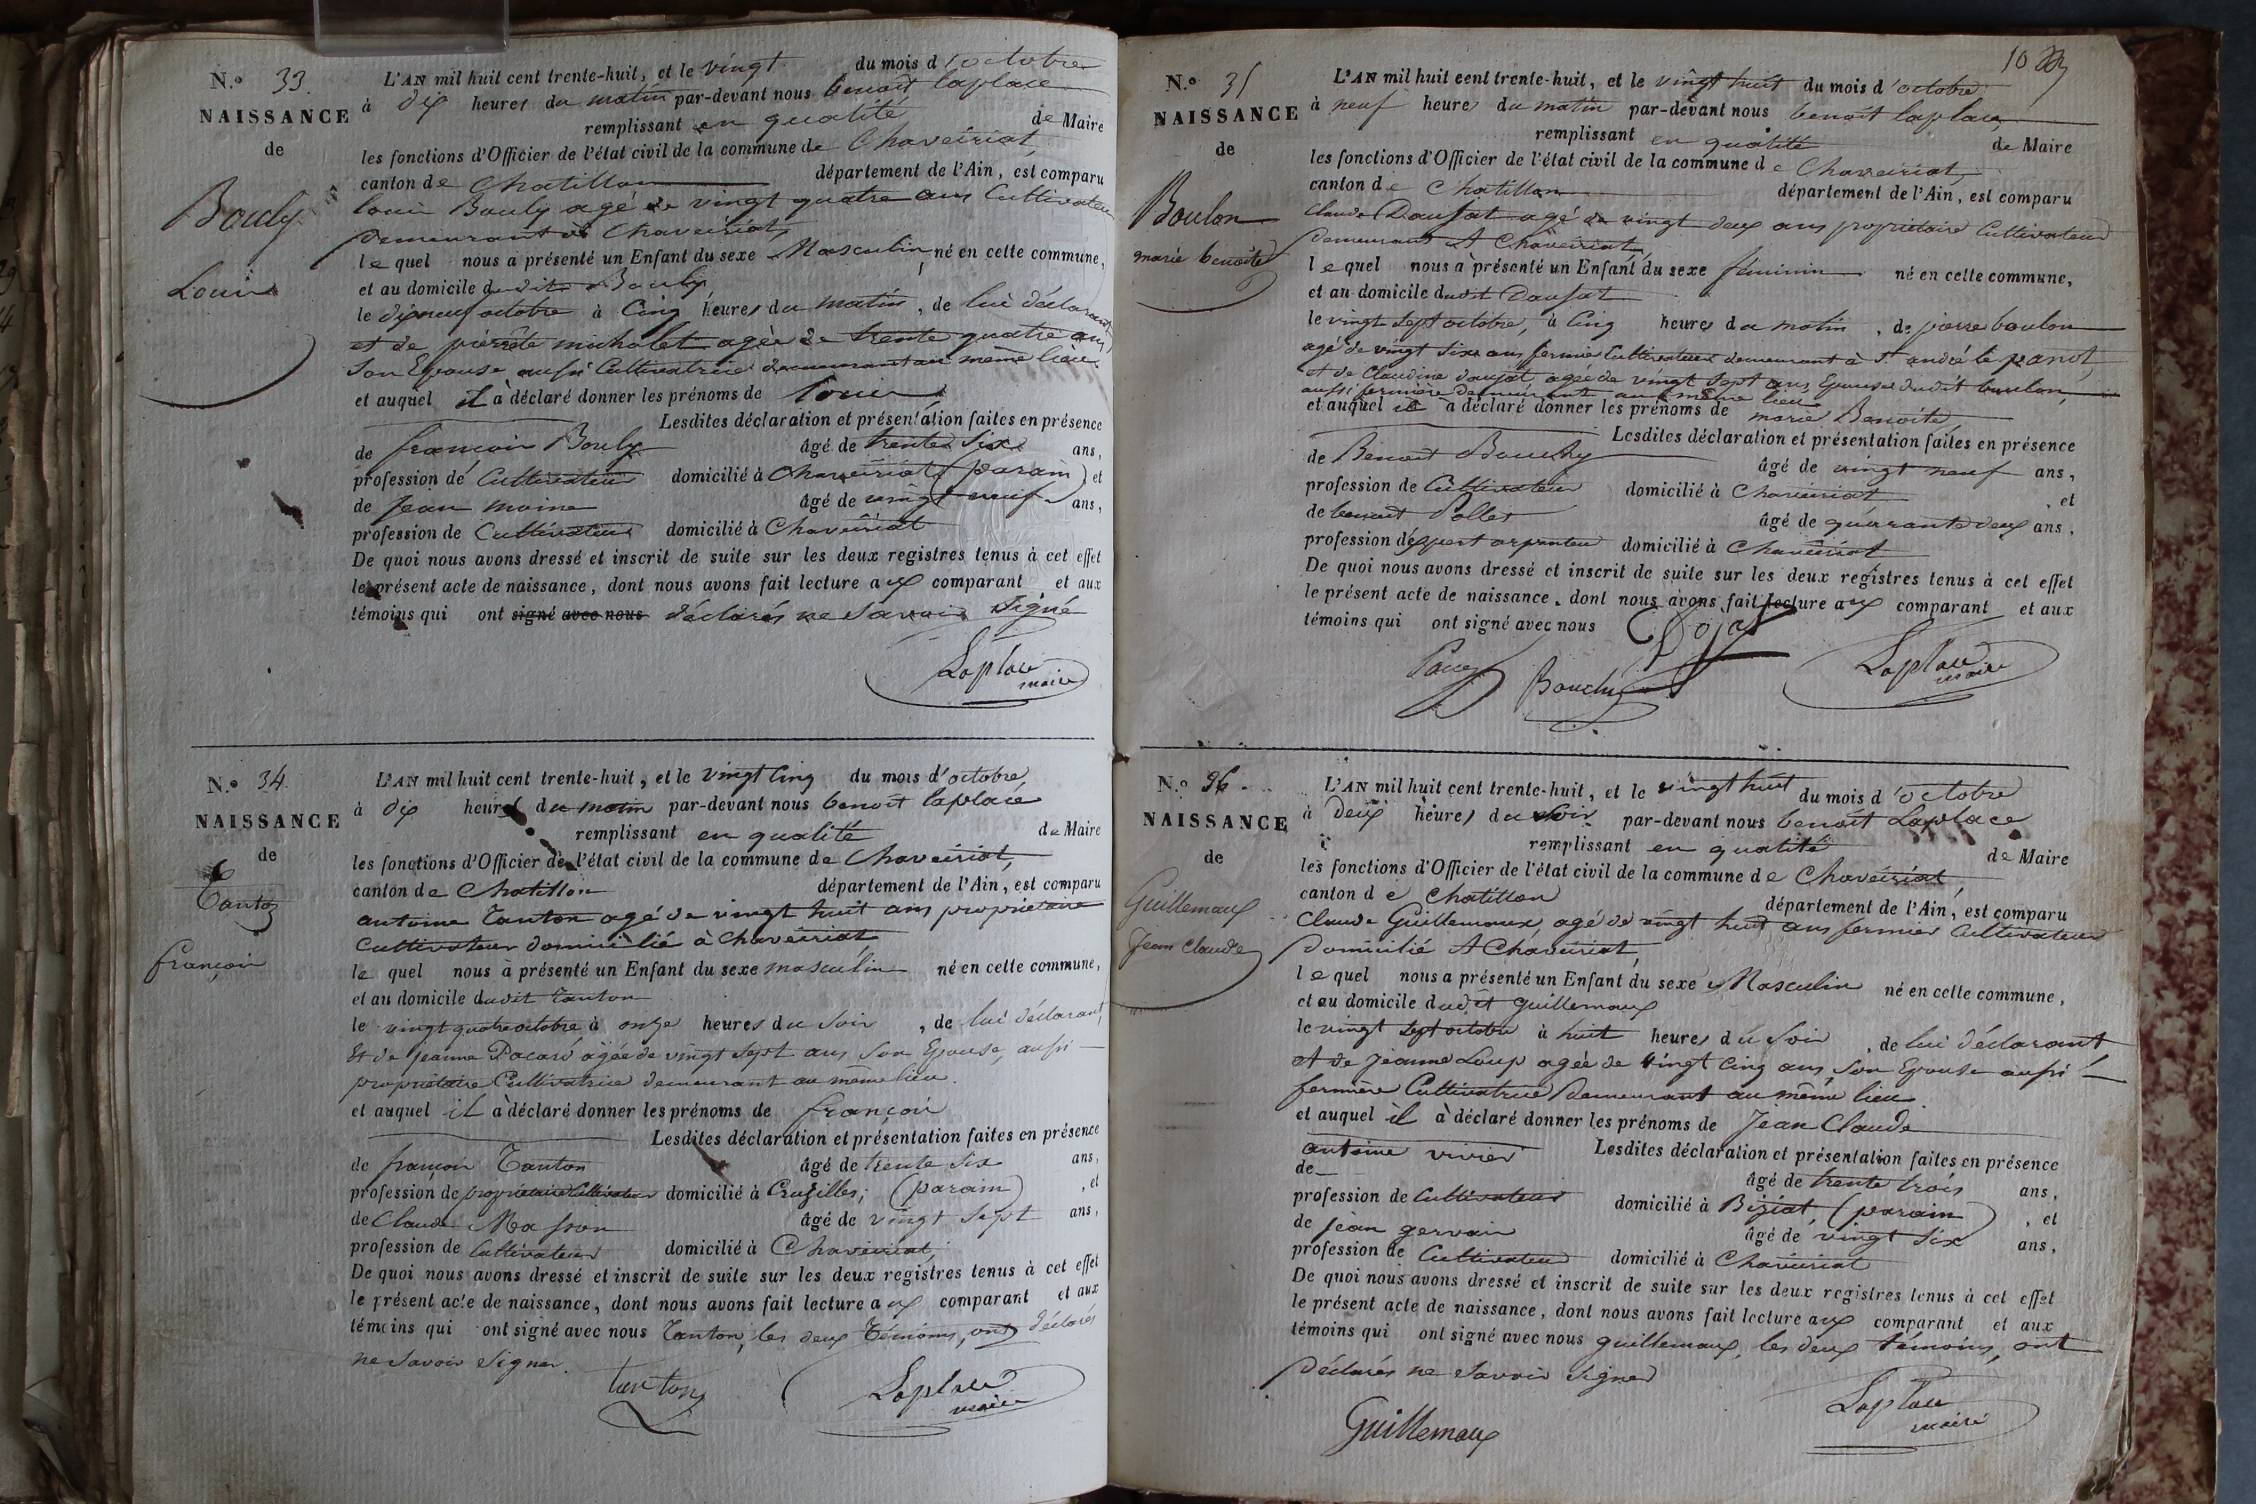 N.º 33.
NAISSANCE
de
Bouly
Louis
L'AN mil huit cent trente-huit, et le vingt du mois d'octobre
à dix heures du matin par-devant nous benoit laplace
remplissant en qualité de Maire
les fonctions d'Officier de l'état civil de la commune de Chaveiriat,
canton de Chatillon département de l'Ain, est comparu
louis Bouly agé de vingt quatre ans Cultivateur
demeurant à Chaveiriat,
lequel nous a présenté un Enfant du sexe Masculin, né en cette commune,
et au domicile dudit Bouly,
le dixneuf octobre à Cinq heures du matin, de lui déclarant
et de pierrette micholet agée de trente quatre ans,
son Epouse aussi Cultivatrice demeurant au même lieu
et auquel il a déclaré donner les prénoms de louis
Lesdites déclaration et présentation faites en présence
de françois Bouly âgé de trente six ans,
profession de Cultivateur domicilié à Chaveiriat (parain) et
de Jean moine âgé de vingt neuf ans,
profession de Cultivateur domicilié à Chaveiriat
De quoi nous avons dressé et inscrit de suite sur les deux registres tenus à cet effet
le présent acte de naissance, dont nous avons fait lecture aux comparant et aux
témoins qui ont signé avec nous déclarés ne savoir signé
Laplace
maire
N.º 34.
NAISSANCE
de
Tanton
françois
L'AN mil huit cent trente-huit, et le vingt Cinq du mois d'octobre,
à dix heures du matin par-devant nous benoit laplace
remplissant en qualité de Maire
les fonctions d'Officier de l'état civil de la commune de Chaveiriat,
canton de Chatillon département de l'Ain, est comparu
antoine Tanton agé de vingt huit ans propriétaire
Cultivateur domicilié à Chaveiriat
lequel nous a présenté un Enfant du sexe masculin né en cette commune,
et au domicile dudit Tanton
le vingt quatre octobre à onze heures du soir, de lui déclarant,
Et de jeanne Pacard agée de vingt sept ans son Epouse, aussi
propriétaire Cultivatrice demeurant au même lieu.
et auquel il a déclaré donner les prénoms de françois
Lesdites déclaration et présentation faites en présence
de françois Tanton âgé de trente six ans,
profession de propriétaire Cultivateur domicilié à Cruzilles, (parain), et
de Claude Masson âgé de vingt sept ans,
profession de Cultivateur domicilié à Chaveiriat,
De quoi nous avons dressé et inscrit de suite sur les deux registres tenus à cet effet
le présent acte de naissance, dont nous avons fait lecture aux comparant et aux
témoins qui ont signé avec nous Tanton, les deux Témoins, ont déclarés
ne savoir signer.
tanton
Laplace
maire
10
N.º 35
NAISSANCE
de
Boulon
marie benoite
L'AN mil huit cent trente-huit, et le vingt huit du mois d'octobre
à neuf heures du matin par-devant nous benoit laplace,
remplissant en qualité de Maire
les fonctions d'Officier de l'état civil de la commune de Chaveiriat,
canton de Chatillon département de l'Ain, est comparu
Claude Daujat agé de vingt deux ans propriétaire Cultivateur
demeurant A Chaveiriat,
lequel nous a présenté un Enfant du sexe féminin né en cette commune,
et au domicile dudit Daujat
le vingt sept octobre, à Cinq heures du matin, de pierre boulon
agé de vingt six ans fermier Cultivateur demeurant à St andré le panot,
et de Claudine daujat agée de vingt sept ans, Epouse dudit boulon,
aussi fermière demeurant au même lieu
et auquel il a déclaré donner les prénoms de marie Benoite
Lesdites déclaration et présentation faites en présence
de Benoit Bouchy âgé de vingt neuf ans,
profession de Cultivateur domicilié à Chaveiriat, et
de benoit âgé de quarante deux ans,
profession d'expert arpenteur domicilié à Chaveiriat
De quoi nous avons dressé et inscrit de suite sur les deux registres tenus à cet effet
le présent acte de naissance, dont nous avons fait lecture aux comparant et aux
témoins qui ont signé avec nous
Bouchy
Laplace
maire
N.º 36.
NAISSANCE
de
Guillemaux
Jean Claude
L'AN mil huit cent trente-huit, et le vingt huit du mois d'octobre
à deux heures du soir par-devant nous benoit Laplace
remplissant en qualité de Maire
les fonctions d'Officier de l'état civil de la commune de Chaveiriat
canton de Chatillon département de l'Ain, est comparu
Claude Guillemaux, agé de vingt huit ans fermier Cultivateur
domicilié A Chaveiriat,
lequel nous a présenté un Enfant du sexe Masculin né en cette commune,
et au domicile dudit guillemaux
le vingt sept octobre à huit heures du soir, de lui déclarant
et de jeanne Loup agée de vingt Cinq ans, son Epouse aussi
fermière Cultivatrice demeurant au même lieu.
et auquel il a déclaré donner les prénoms de Jean Claude
Lesdites déclaration et présentation faites en présence
de antoine vivier âgé de trente trois ans,
profession de Cultivateur domicilié à Biziat, (parain), et
de jean gervain âgé de vingt six ans,
profession de Cultivateur domicilié à Chaveiriat
De quoi nous avons dressé et inscrit de suite sur les deux registres tenus à cet effet
le présent acte de naissance, dont nous avons fait lecture aux comparant et aux
témoins qui ont signé avec nous guillemaux, les deux témoins, ont
déclarés ne savoir signer
Guillemaux
Laplace
maire